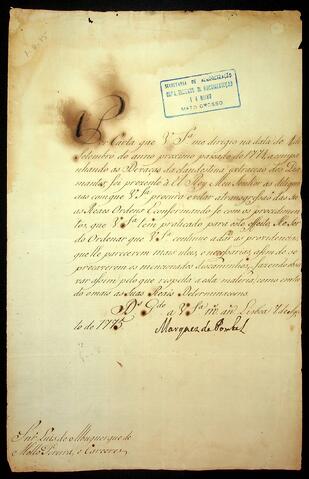 SECRETARIA DE ADMINISTRAÇÃO
DEPARTAMENTO DE DOCUMENTAÇÃO
MATO GROSSO
Por Carta que V Sª me dirigio na data de
Setembro do anno proximo passado de 1774, acompa
nhando as Devaças da clandestina extracção dos Dia
mantes, foi prezente a El Rey Meu Senhor as deligen
cias com que V Sª procura evitar a transgressão das Su
as Reaes Ordens: Conformandose com os procedimen
tos, que V Sª tem praticado para este effeito, He Ser
do Ordenar que V Sª continue a dar as providencias,
que lhe parecerem mais uteis, e necessarias, afim de se
precaverem os mencionados discaminhos, fazendo obser
var assim pelo que respeita a esta materia, como em to
do o mais as Suas Reaes Determinaçoens.
Ds Gde a V Sª m. an. Lisboa
lo de 1775
Marquez de Pombal
Snr Luis de Albuquerque de
Mello Pereira, e Caceres